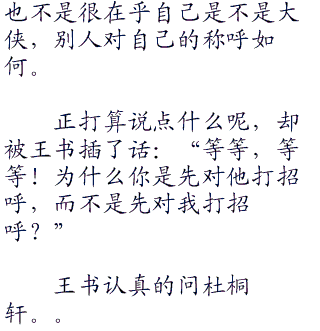 也不是很在乎自己是不是大
侠，别人对自己的称呼如
何。
正打算说点什么呢，却
被王书插了话：“等等，等
等！为什么你是先对他打招
呼，而不是先对我打招
呼？”
王书认真的问杜桐
轩。。